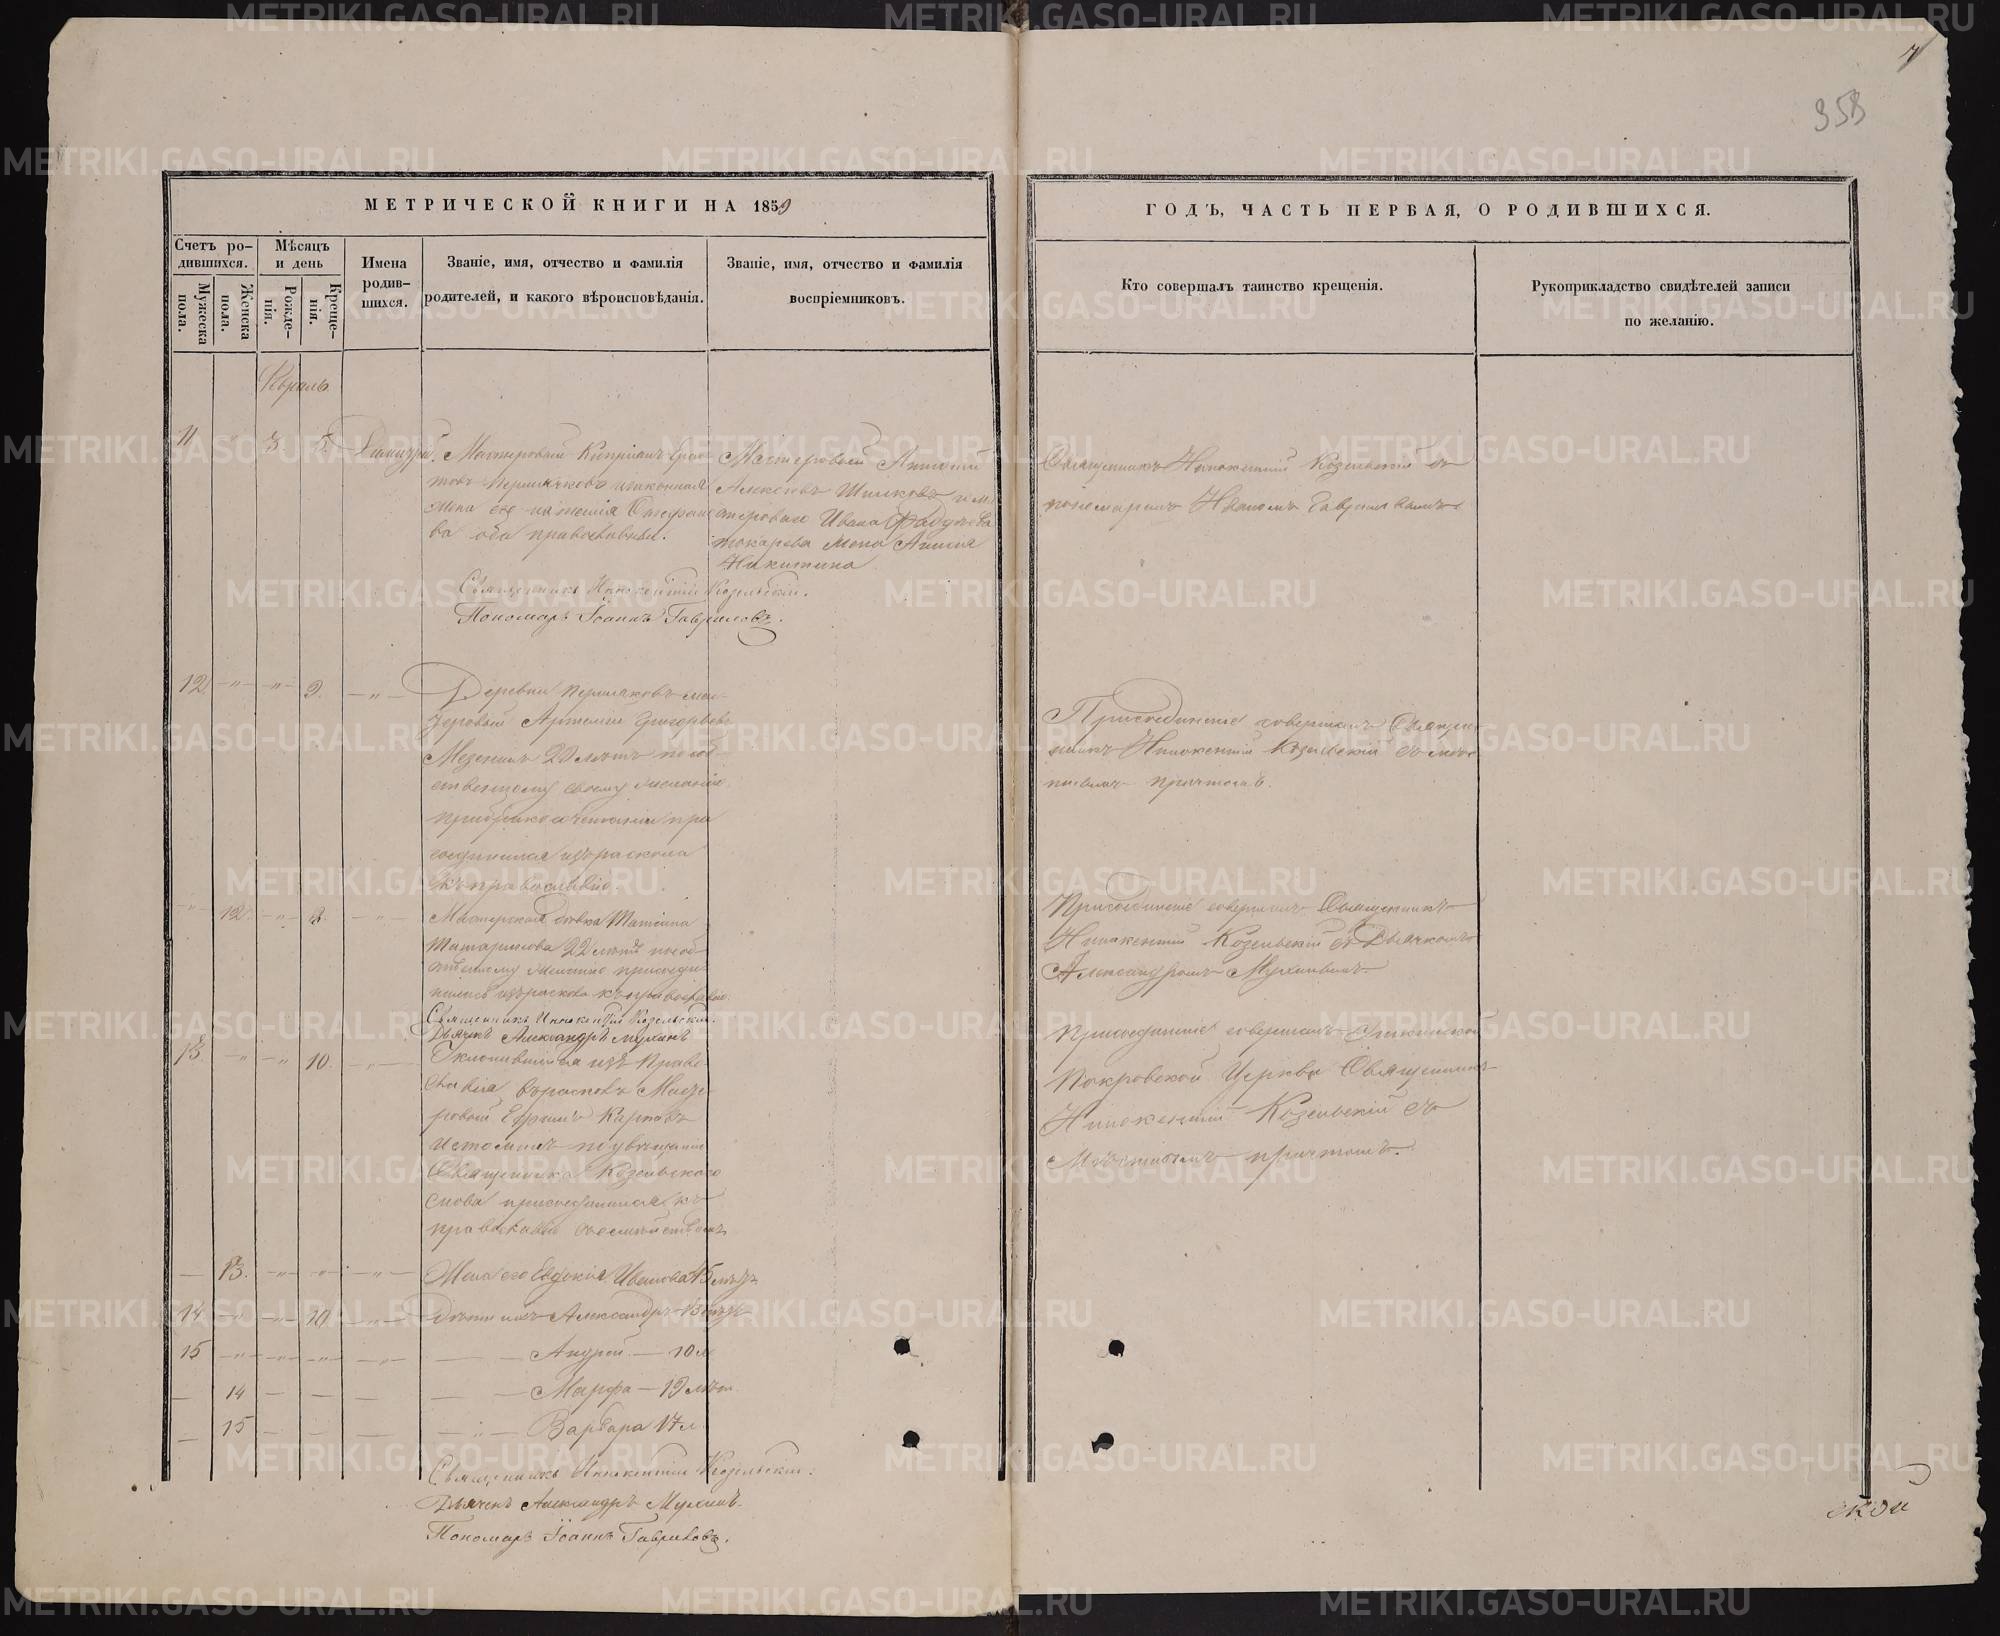 358
МЕТРИЧЕСКОЙ КНИГИ НА 1859
ГОДЪ, ЧАСТЬ ПЕРВАЯ, О РОДИВШИХСЯ.
Счетъ ро-
дившихся.
Мужеска пола.
Женска пола.
Мѣсяцъ
и день
Рожде-
нія.
Креще-
нія.
Имена
родив-
шихся.
Званіе, имя, отчество и фамилія
родителей, и какого вѣроисповѣданія.
Званіе, имя, отчество и фамилія
воспріемниковъ.
Кто совершалъ таинство крещенія.
Рукоприкладство свидѣтелей записи
по желанію.
Февраль
11 " 3 5. Димитрій.
Мастеровый Кипріанъ
законная
жена его
ва оба православные.
Мастеровый Антоній
Алексѣевъ Шишковъ и м
астероваго Ивана
токарева жена Анисія
Никитина
Священникъ Иннокентій Козельскій съ
пономаремъ Иваномъ Гавриловымъ
Священникъ Иннокентій Козельскій.
Пономарь Іоаннъ Гавриловъ.
12. " " 9. "
Деревни Пермяковъ мас
теровый Артемій Григорьевъ
Мезенинъ 20 лѣтъ по соб
ственному своему желанію
при бракосочетаніи при
соединился изъ раскола
къ православію.
Присоединеніе совершалъ Священ
никъ Иннокентій Козельскій съ мѣс
тнымъ причтомъ.
" 12. " 9. "
Мастерская дѣвка Татіана
Татаринова 22 лѣтъ по соб
ственному желанію присоеди
нилась изъ раскола къ православію.
Священникъ Иннокентій Козельскій.
Дьячекъ Александръ Мухинъ
Присоединеніе совершалъ Священникъ
Иннокентій Козельскій съ Дьячкомъ
Александромъ Мухинымъ.
13. " " 10. "
Уклонившійся изъ Право
славія въ расколъ Масте
ровый Ефимъ Карповъ
Истоминъ по увѣщанію
Священника Козельскаго
снова присоединился къ
православію съ семействомъ
Присоединеніе совершалъ
Покровской Церкви Священникъ
Иннокентій Козельскій съ
Мѣстнымъ причтомъ.
— 13. " " "
Жена его Евдокія Иванова 45 лѣтъ
14 " " 10. "
Дѣти ихъ Александръ 13 лѣтъ
15 " " " " — — Андрей — 10 л
— 14 — — — — — Марфа — 19 лѣтъ
— 15 — — — — " — Варвара 17 л.
Священникъ Иннокентій Козельскій.
Дьячекъ Александръ Мухинъ.
Пономарь Іоаннъ Гавриловъ.
ской
METRIKI.GASO-URAL.RU